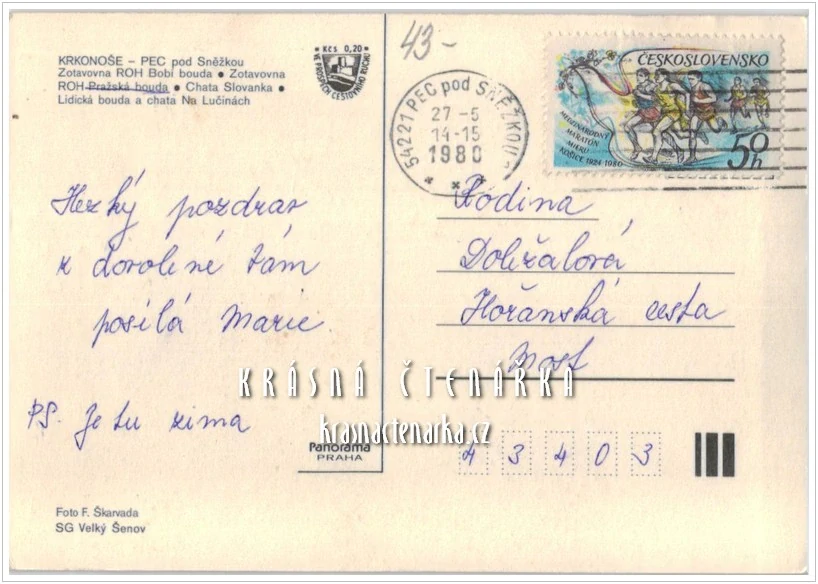 KRKONOŠE – PEC pod Sněžkou
Zotavovna ROH Bobí bouda ● Zotavovna
ROH Pražská bouda ● Chata Slovanka ●
Lidická bouda a chata Na Lučinách
Kčs 0,20
VE PROSPĚCH CESTOVNÍHO RUCHU
43-
54221 PEC pod SNĚŽKOU
27.-5
14-15
1980
ČESKOSLOVENSKO
MEZINÁRODNÝ
MARATÓN
MIERU
KOŠICE 1924-1980
50h
Hezký pozdrav
z dovolené Vám
posílá Marie
PS. Je tu zima
Rodina
Doležalová
Hořanská cesta
Most
KRÁSNÁ ČTENÁRKA
krasnactenarka.cz
Panorama
PRAHA
4 3 4 0 3
Foto F. Škarvada
SG Velký Šenov